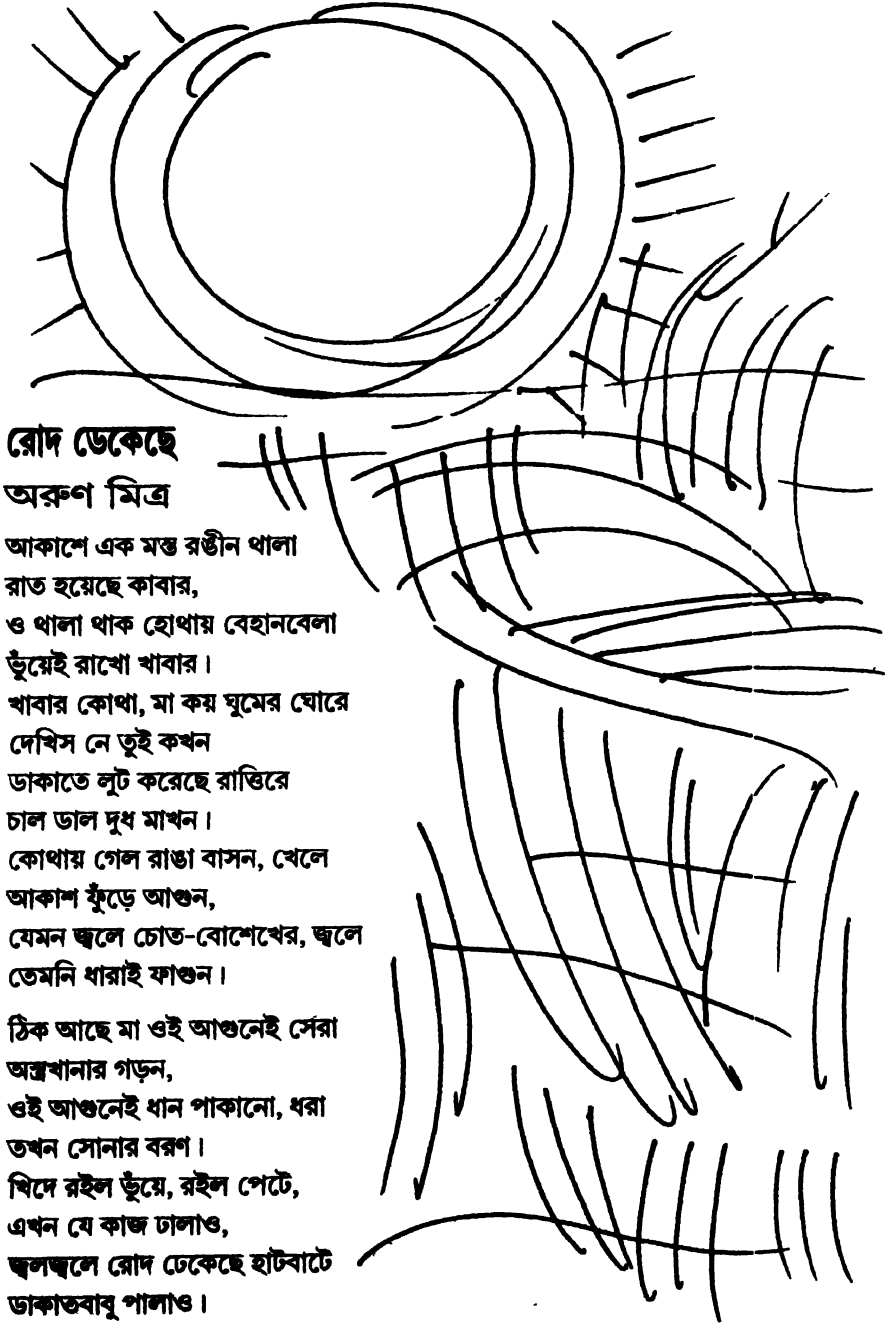 রোদ ডেকেছে
অরুণ মিত্র
আকাশে এক মস্ত রঙীন থালা
রাত হয়েছে কাবার,
ও থালা থাক হোথায় বেহানবেলা
ভুঁয়েই রাখো খাবার।
খাবার কোথা, মা কয় ঘুমের ঘোরে
দেখিস নে তুই কখন
ডাকাতে লুট করেছে রাত্তিরে
চাল ডাল দুধ মাখন।
কোথায় গেল রাঙা বাসন, খেলে
আকাশ ফুঁড়ে আগুন,
যেমন জ্বলে চোত-বোশেখের, জ্বলে
তেমনি ধারাই ফাগুন।
ঠিক আছে মা ওই আগুনেই সেরা
অস্ত্রখানার গড়ন,
ওই আগুনেই ধান পাকানো, ধরা
তখন সোনার বরণ।
খিদে রইল ভুঁয়ে, রইল পেটে,
এখন যে কাজ ঢালাও,
জ্বলজ্বলে রোদ ঢেকেছে হাটবাটে
ডাকাতবাবু পালাও।